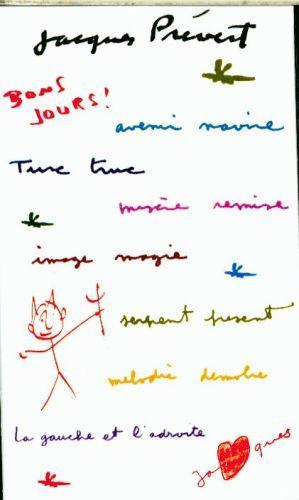 Jacques Prévert
BONS
JOURS!
avenir navire
Turc truc
misère remise
image magie
serpent présent
mélodie démolie
La gauche et l'adroite
Jacques